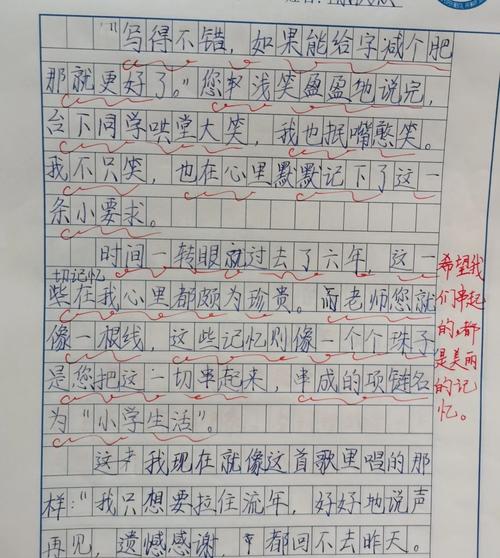 "写得不错，如果能给字减个肥
那就更好了。"您浅笑盈盈地说完，
台下同学哄堂大笑，我也抿嘴憨笑。
我不只笑，也在心里默默记下了这一
条小要求。
时间一转眼就过去了六年，这一
切记忆
些在我心里都颇为珍贵。而老师您就
像一根线，这些记忆则像一个个珠子
是您把这一切串起来，串成的项链名
为"小学生活"。
我现在就像这首歌里唱的那
样："我只想要拉住流年，好好地说声
再见，遗憾感谢，都回不去昨天。
希望我
们串起
的，都
是美丽
的记
忆。